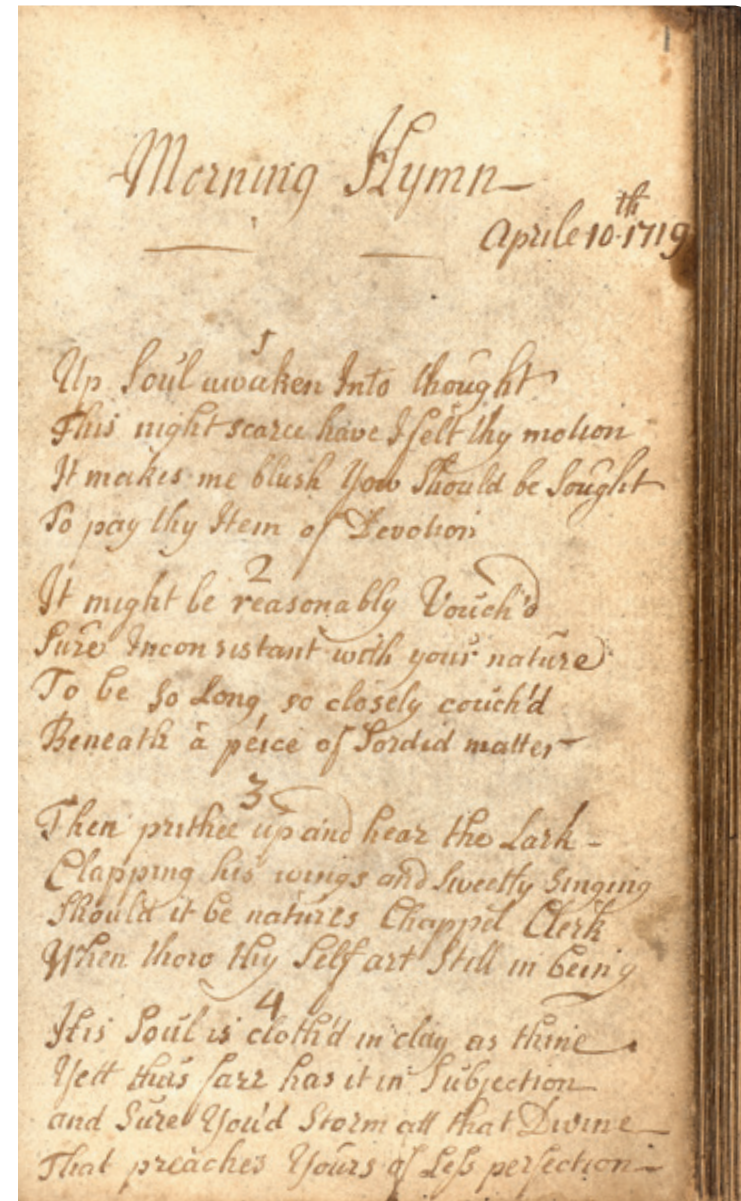 Morning Hymn
Aprile 10th 1719
1
Up Soul awaken Into thought
This night scarce have I felt thy motion
It makes me blush You Should be Sought
To pay thy Item of Devotion
2
It might be reasonably Vouch'd
Sure Inconsistant with your nature
To be so Long, so closely couch'd
Beneath a peice of Sordid matter
3
Then prithee up and hear the Lark
Clapping his wings and Sweetly Singing
Should it be natures Chappel Clerk
When thow thy Self art Still in being
4
His Soul is cloth'd in clay as thine
Yett thus farr has it in Subjection
and Sure You'd Storm att that Divine
That preaches Yours of Less perfection